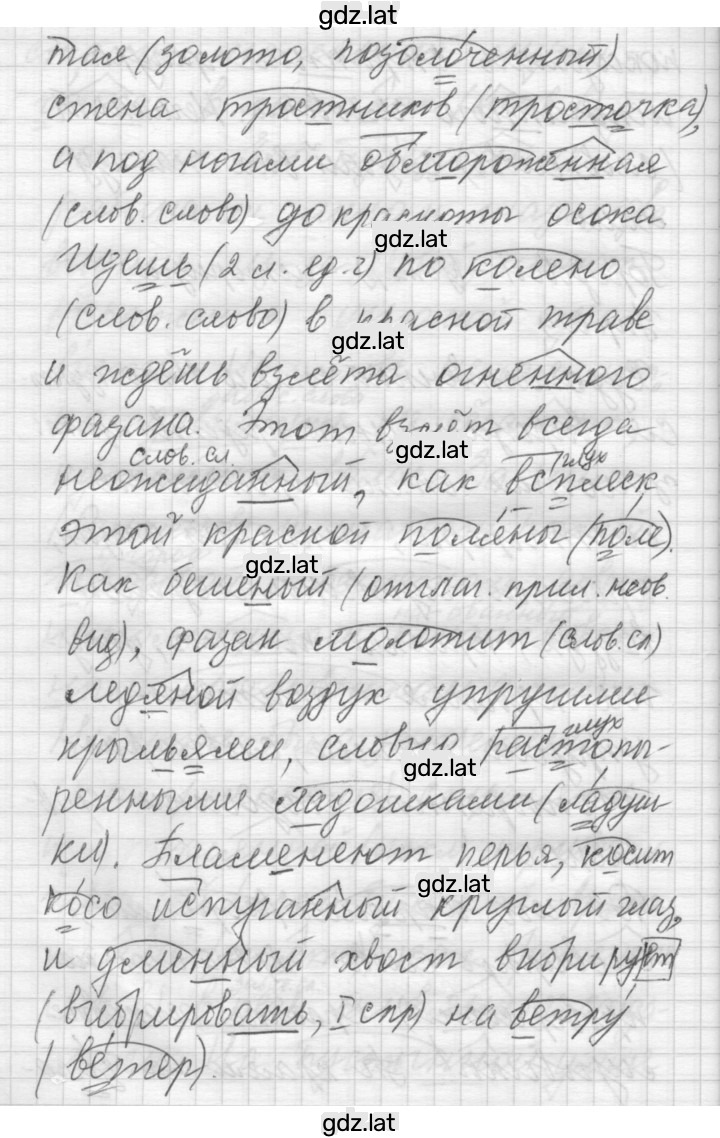 gdz.lat
тая (золото, позолоченный)
стена тростников (тросточка),
а под ногами обмороженная
(слов. слово) до красноты осока.
gdz.lat
Идешь (2 л. ед. ч) по колено
(слов. слово) в красной траве
gdz.lat
и ждёшь взлёта огненного
фазана. Этот взлёт всегда
слов. сл глух
gdz.lat
неожиданный, как всплеск
этой красной поляны (поле).
gdz.lat
Как бешеный (отглаг. прил. несов.
вид), фазан молотит (слов. сл)
ледяной воздух упругими
глух
крыльями, словно растопы-
gdz.lat
ренными ладошками (ладуш-
ки). Пламенеют перья, косит
gdz.lat
косо испуганный круглый глаз,
и длинный хвост вибрирует
(вибрировать, I спр) на ветру
(ветер).
gdz.lat